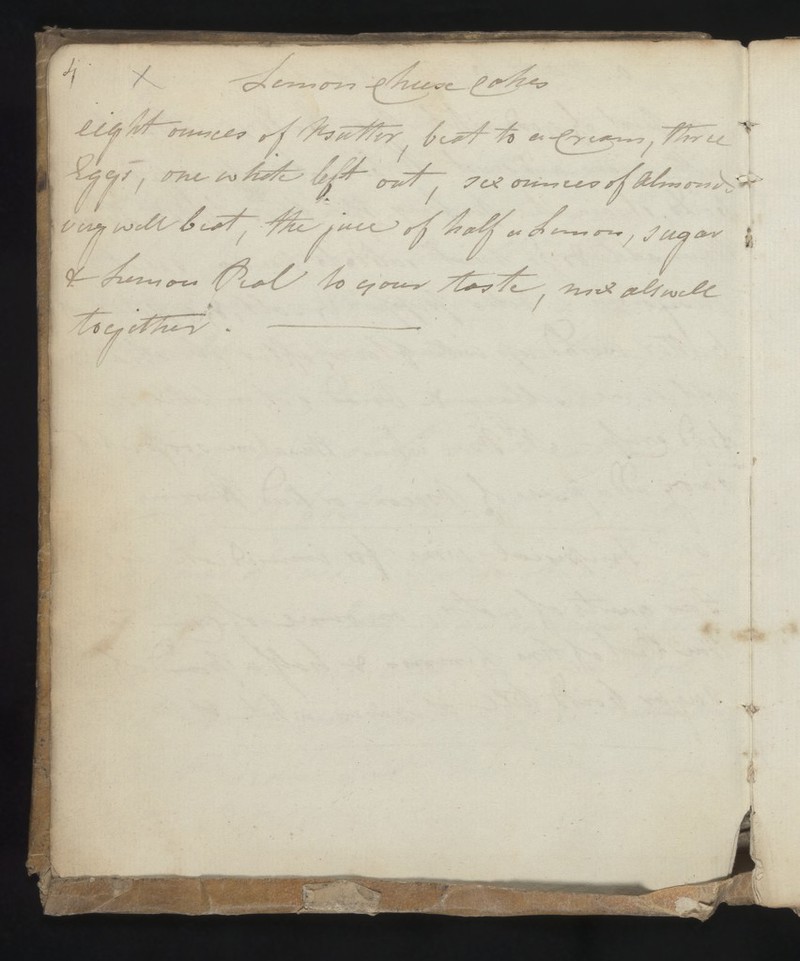 4 x Lemon Cheese Cakes
eight ounces of Butter, beat to a Cream, three
Eggs, one white left out, six ounces of Almonds
very well beat, the juce of half a Lemon, sugar
& Lemon Peal to your taste, mix all well
together.